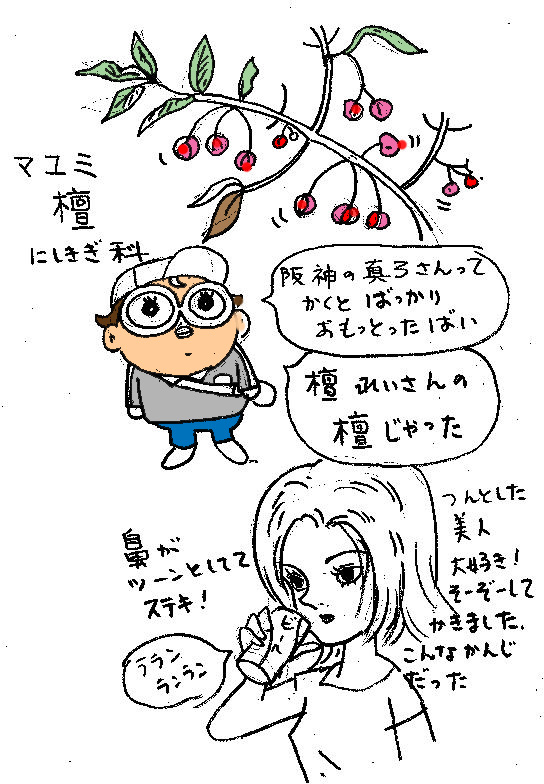 マユミ
檀
にしきぎ科
阪神の真弓さんって
かくと ばっかり
おもっとったばい
檀 れいさんの
檀じゃった
つんとした
美人
大好き!
そーぞーして
かきました、
こんなかんじ
だった
鼻が
ツーンとしてて
ステキ!
ララン
ランラン
ビール